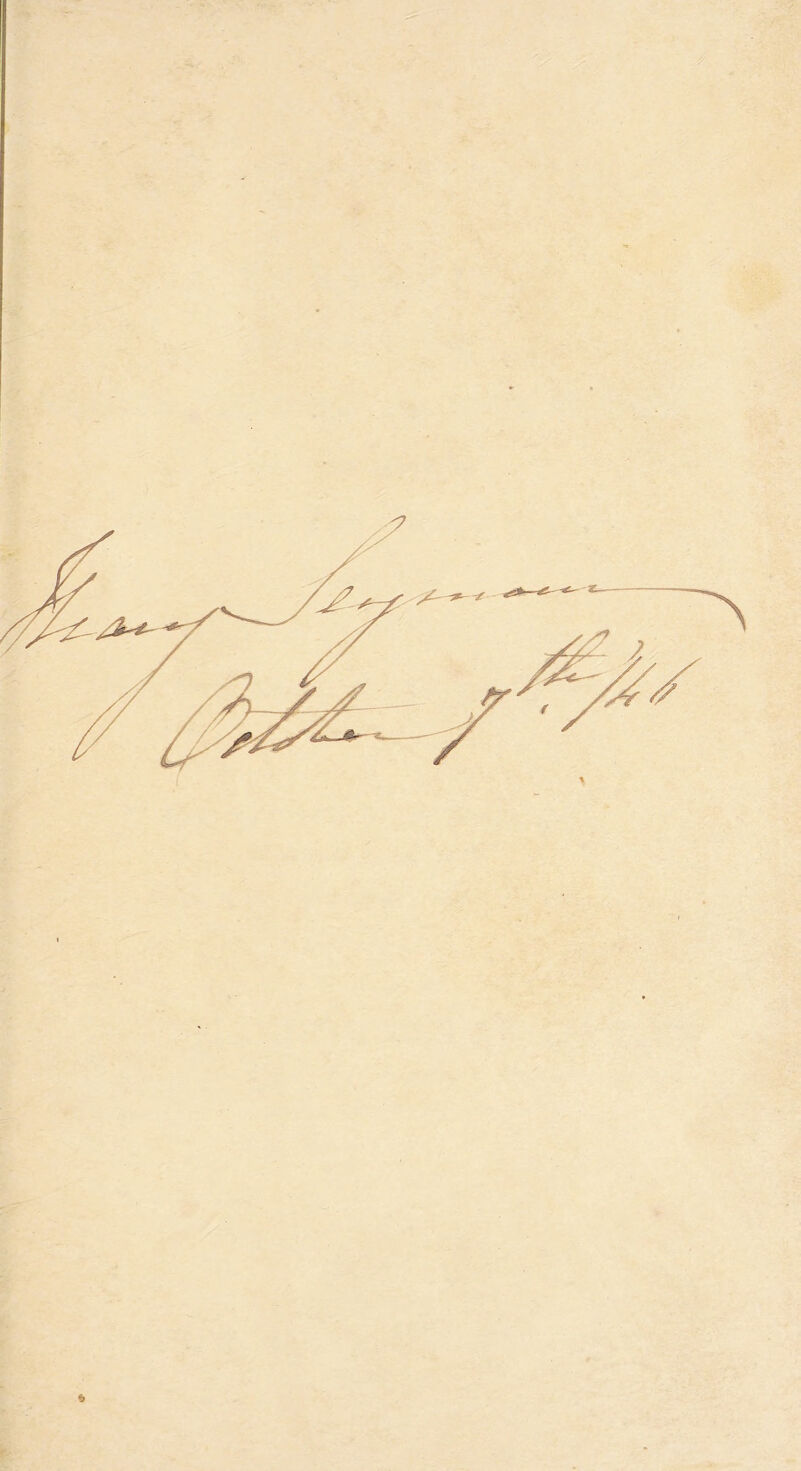 Mary Seymour
October 7th /46